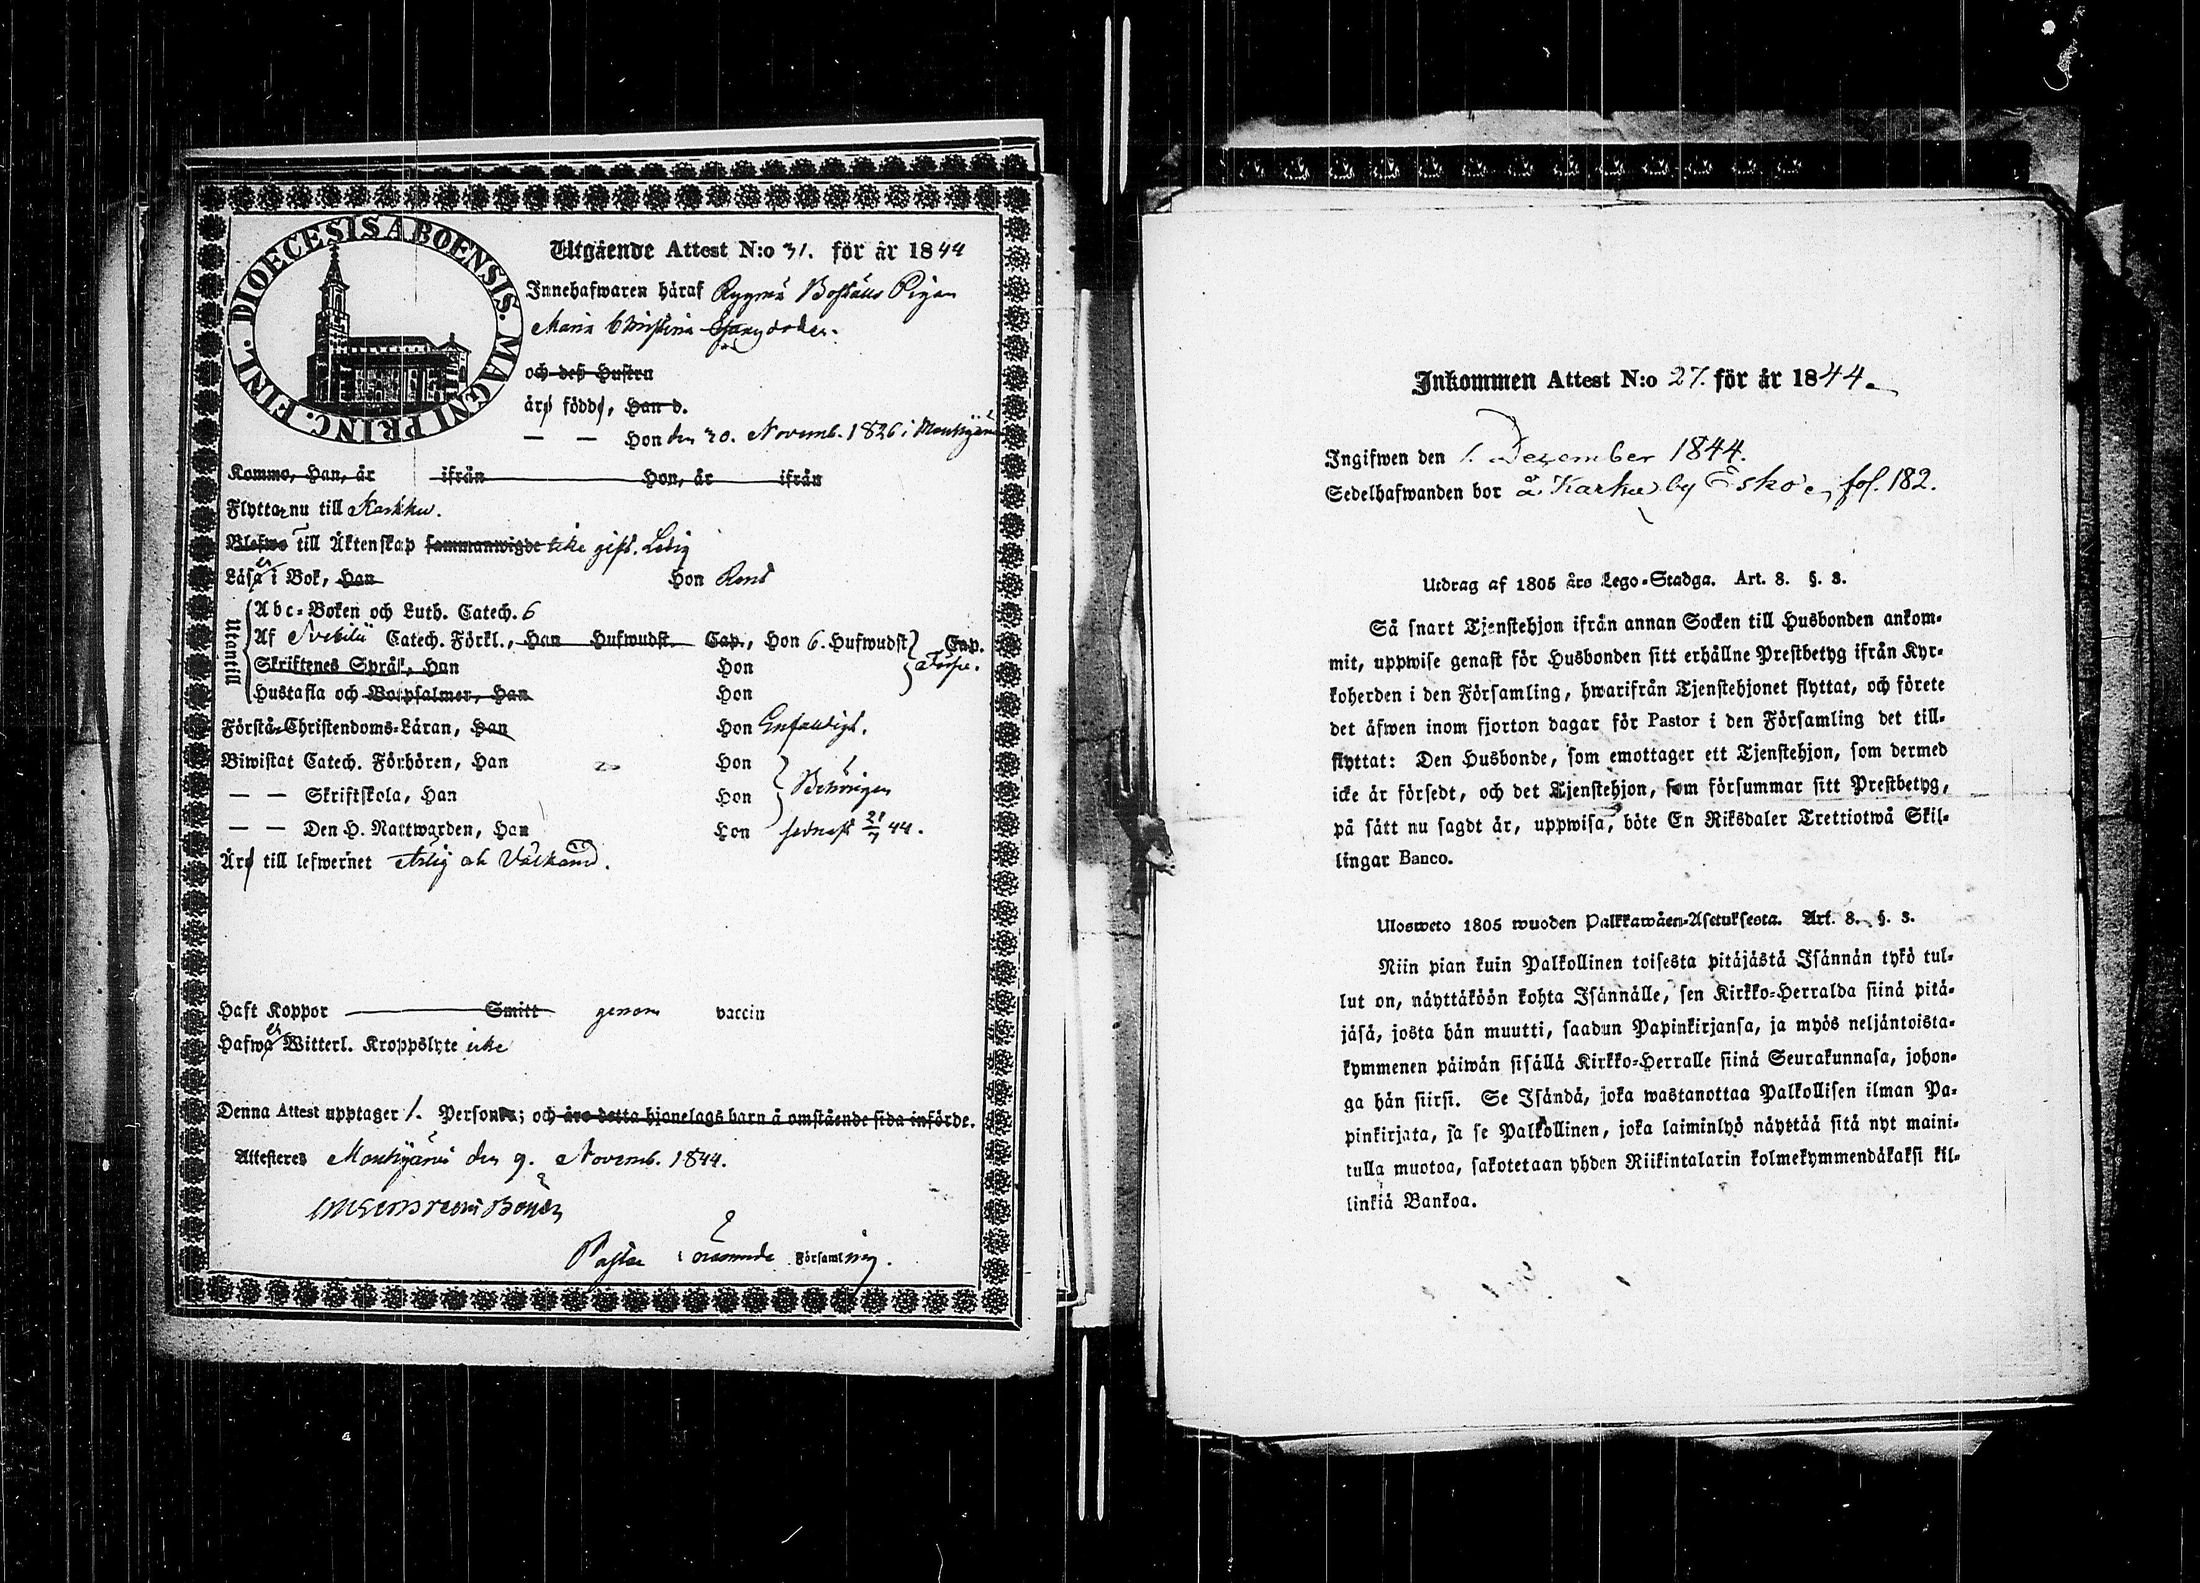 DIOECESIS ABOENSIS. MAGNI PRINC. FINL.
Utgående Attest N:o 31. för år 1844
Innehafwaren häraf Rygmä Boställs Pigan
Maria Christina
och des Hustru
äro födde, Han d.
— — Hon den 20. Novemb. 1826 i Mouhijärvi
Kommo, Han, år ifrån Hon, år ifrån
Flyttar nu till Karkku.
Blefwo till Äktenskap sammanwigde icke gift. Ledig
Läser i Bok, Han Hon Rent
Utantill
Abc-Boken och Luth. Catech. 6
Af Svebilii Catech. Förkl., Han Hufwudst. Cap., Hon 6. Hufwudst Cap.
Skriftenes Språk, Han Hon
Hustafla och Botpsalmer, Han Hon
Förstå Christendoms-Läran, Han Hon Enfaldigt.
Biwistat Catech. Förhören, Han Hon
— — Skriftskola, Han Hon Behörigen
— — Den H. Nattwarden, Han Hon sednast 21/7 44.
Äro till lefwernet Ärlig och Välkänd.
Haft Koppor Smitt genom vaccin
Hafwer Witterl. Kroppslyte icke
Denna Attest upptager 1. Person; och äro detta hjonelags barn å omstående sida införde.
Attesteras Mouhijärvi den 9. Novemb. 1844.
Pastor i Församling.
Inkommen Attest N:o 27. för år 1844.
Ingifwen den 1. Dezember 1844.
Sedelhafwanden bor å Karku by Esko, fol. 182.
Utdrag af 1805 års Lego-Stadga. Art. 8. §. 3.
Så snart Tjenstehjon ifrån annan Socken till Husbonden ankom-
mit, uppwise genast för Husbonden sitt erhållne Prestbetyg ifrån Kyr-
koherden i den Församling, hwarifrån Tjenstehjonet flyttat, och förete
det äfwen inom fjorton dagar för Pastor i den Församling det till-
flyttat: Den Husbonde, som emottager ett Tjenstehjon, som dermed
icke är försedt, och det Tjenstehjon, som försummar sitt Prestbetyg,
på sätt nu sagdt är, uppwisa, böte En Riksdaler Trettiotwå Skil-
lingar Banco.
Ulosweto 1805 wuoden Palkkawäen-Asetuksesta. Art. 8. §. 3.
Niin pian kuin Palkollinen toisesta pitäjästä Isännän tykö tul-
lut on, näyttäköön kohta Isännälle, sen Kirkko-Herralda siinä pitä-
jäsä, josta hän muutti, saadun Papinkirjansa, ja myös neljäntoista-
kymmenen päiwän sisällä Kirkko-Herralle siinä Seurakunnasa, johon-
ga hän siirsi. Se Isändä, joka wastanottaa Palkollisen ilman Pa-
pinkirjata, ja se Palkollinen, joka laiminlyö näyttää sitä nyt maini-
tulla muotoa, sakotetaan yhden Riikintalarin kolmekymmendäkaksi kil-
linkiä Bankoa.